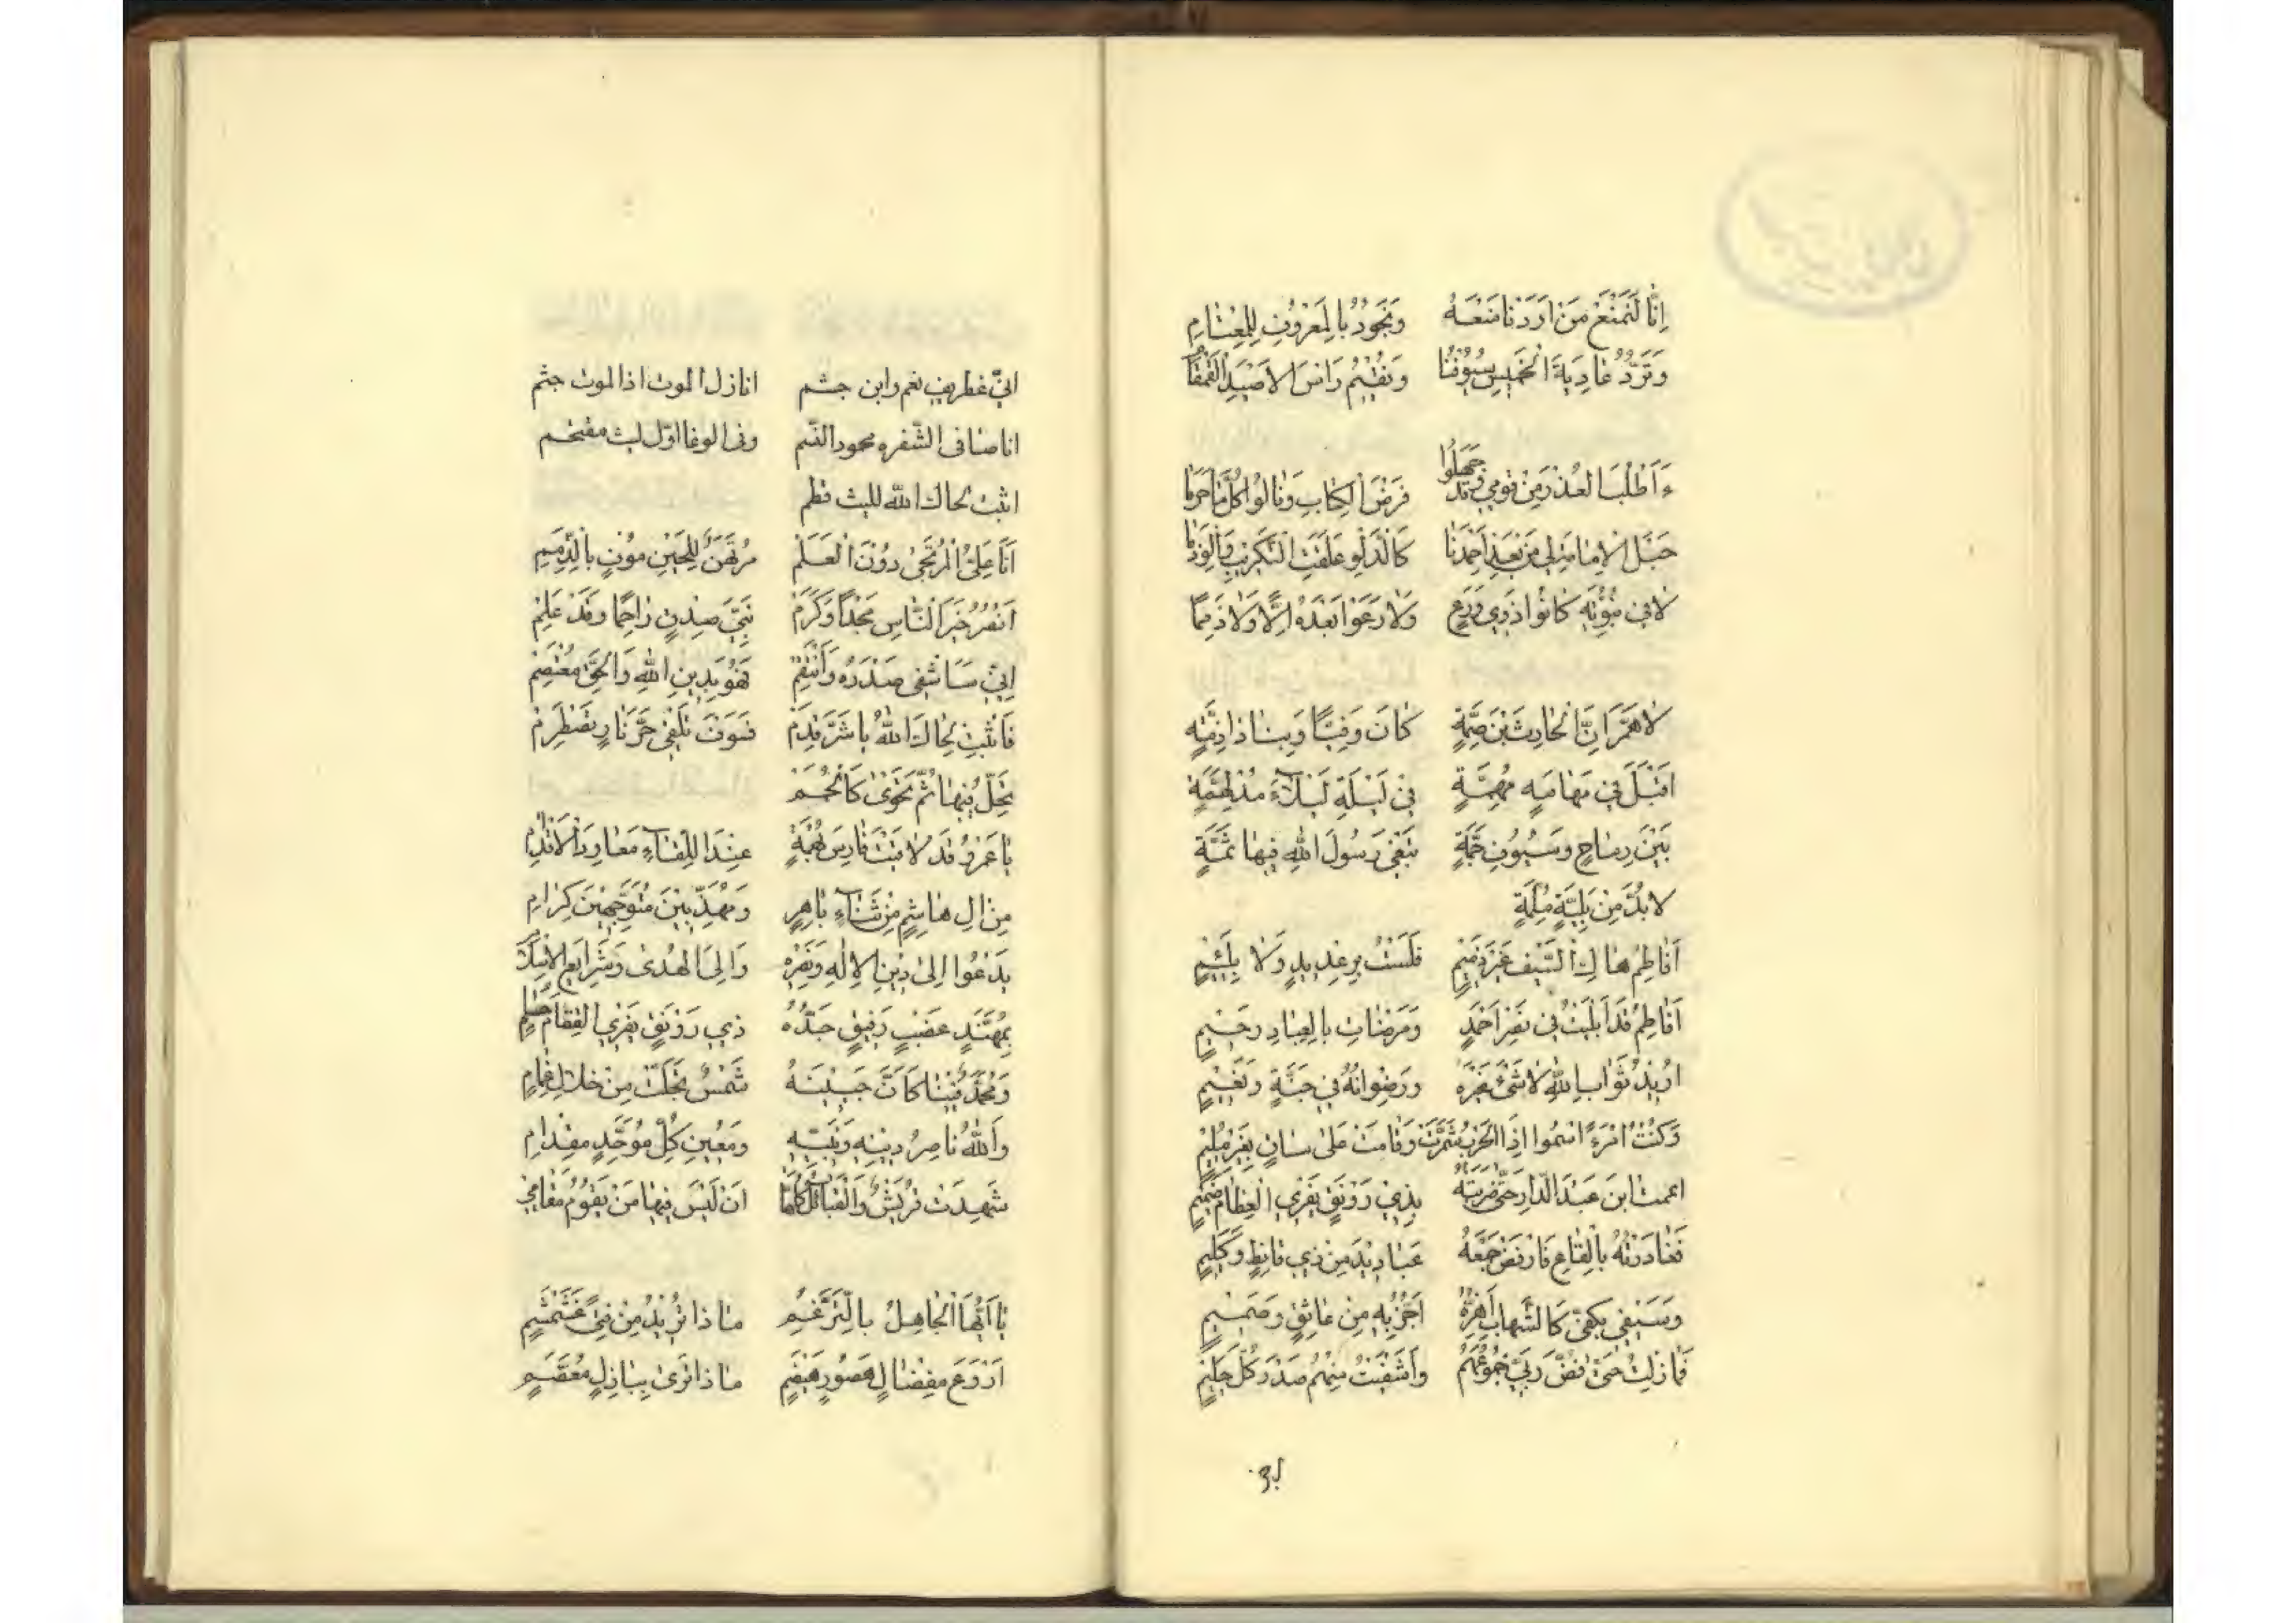 اِنَّا لَنَمْنَعُ مَنْ اَرَدْنَا مَنْعَهُ وَنَجُودُ بِالْمَعْرُوفِ لِلْمُعْتَامِ
وَتَرُدُّ عَادِيَةَ الْخَمِيسِ سُيُوفُنَا وَنُقِيمُ رَأْسَ الْاَصْيَدِ الْقَمْقَامِ
ءَاَطْلُبُ الْعُذْرَ مِنْ قَوْمِي وَقَدْ جَهِلُوا فَرْضَ الْكِتَابِ وَنَالُوا كُلَّ مَا حَرُمَا
حَبْلُ الْاِمَامَةِ لِي مِنْ بَعْدِ اَحْمَدِنَا كَالدَّلْوِ عَلِقَتِ التَّكْرِيبَ وَالْوَذَمَا
لَا فِي نُبُوَّتِهِ كَانُوا ذَوِي وَرَعٍ وَلَا رَعَوْا بَعْدَهُ اِلًّا وَلَا ذِمَمًا
لَاهُمَّ اِنَّ الْحَارِثَ بْنَ صِمَّةٍ كَانَ وَفِيًّا وَبِنَا ذَا ذِمَّةٍ
اَقْبَلَ فِي مَهَامَهٍ مُهِمَّةٍ فِي لَيْلَةٍ لَيْلَاءَ مُدْلَهِمَّةٍ
بَيْنَ رِمَاحٍ وَسُيُوفٍ جَمَّةٍ تَبْغِي رَسُولَ اللهِ فِيهَا ثَمَّةٍ
لَا بُدَّ مِنْ بَلِيَّةٍ مُلِمَّةٍ
اَفَاطِمُ هَاكِ السَّيْفَ غَيْرَ ذَمِيمٍ فَلَسْتُ بِرِعْدِيدٍ وَلَا بِلَئِيمٍ
اَفَاطِمُ قَدْ اَبْلَيْتُ فِي نَصْرِ اَحْمَدٍ وَمَرْضَاتِ بِالْعِبَادِ رَحِيمٍ
اُرِيدُ ثَوَابَ اللهِ لَا شَيْءَ غَيْرَهُ وَرِضْوَانَهُ فِي جَنَّةٍ وَنَعِيمٍ
وَكُنْتُ امْرَءً اَسْمُوا اِذَا الْحَرْبُ شَمَّرَتْ وَقَامَتْ عَلَى سَاقٍ بِغَيْرِ مُلِيمٍ
اممت ابْنَ عَبْدِ الدَّارِ حَتَّى ضَرَبْتُهُ بِذِي رَوْنَقٍ يَفْرِي الْعِظَامَ صَمِيمٍ
فَغَادَرْتُهُ بِالْقَاعِ فَارْفَضَّ جَمْعُهُ عَبَادِيدَ مِنْ ذِي قَانِطٍ وَكَلِيمٍ
وَسَيْفِي بِكَفِّي كَالشِّهَابِ اَهُزُّهُ اَجُزُّ بِهِ مِنْ عَاتِقٍ وَصَمِيمٍ
فَمَا زِلْتُ حَتَّى فَضَّ رَبِّي جُمُوعَهُمْ وَاَشْفَيْتُ مِنْهُمْ صَدْرَ كُلِّ حَلِيمٍ
انا نازل الموت اذا الموت جثم
انا صافى الشفره محمود الشيم وفى الوغا اوّل ليث مقتحم
اثبت لحاك الله لليث قطم
اَنَا عَلِيُّ الْمُرْتَجَى دُونَ الْعَلَمْ مُرْتَهَنٌ لِلْحَيْنِ مُوفٍ بِالذِّمَمِ
اَنْصُرُ خَيْرَ النَّاسِ مَجْدًا وَكَرَمْ نَبِيَّ صِدْقٍ رَاحِمًا وَقَدْ عَلِمْ
اِنِّي سَاَشْفِي صَدْرَهُ وَاَنْتَقِمْ فَهُوَ بِدِينِ اللهِ وَالْحَقِّ مُعْتَصِمْ
فَاثْبُتْ لَحَاكَ اللهُ يَا شَرَّ قَدَمْ فَسَوْفَ تَلْقَى حَرَّ نَارٍ تَضْطَرِمْ
تَحُلُّ فِيهَا ثُمَّ تَهْوِى كَالْحُمَمْ
يَا عَمْرُو قَدْ لَاقَيْتَ فَارِسَ بُهْمَةٍ عِنْدَ اللِّقَاءِ مُعَاوِدَ الْاِقْدَامِ
مِنْ اٰلِ هَاشِمٍ مِنْ سَنَاءٍ بَاهِرٍ وَمُهَذَّبِينَ مُتَوَّجِينَ كِرَامِ
يَدْعُوا اِلَى دِينِ الْاِلٰهِ وَنَصْرِهِ وَاِلَى الْهُدَى وَشَرَايِعِ الْاِسْلَامِ
بِمُهَنَّدٍ عَضْبٍ رَقِيقٍ حَدُّهُ ذِي رَوْنَقٍ يَفْرِي الْفِقَارَ حُسَامٍ
وَمُحَمَّدٌ فِينَا كَاَنَّ جَبِينَهُ شَمْسٌ تَجَلَّتْ مِنْ خِلَالِ غَمَامٍ
وَاللهُ نَاصِرُ دِينِهِ وَنَبِيِّهِ وَمُعِينُ كُلِّ مُوَحِّدٍ مِقْدَامِ
شَهِدَتْ قُرَيْشٌ وَالْقَبَائِلُ كُلُّهَا اَنْ لَيْسَ فِيهَا مَنْ يَقُومُ مَقَامِي
يَا اَيُّهَا الْجَاهِلُ بِالتَّرَغُّمِ مَاذَا تُرِيدُ مِنْ فَتًى غَشَمْشَمٍ
اَرْوَعَ مِفْضَالٍ هَصُورٍ هَيْصَمٍ مَاذَا تَرَى بِبَازِلٍ مُعْتَصِمٍ